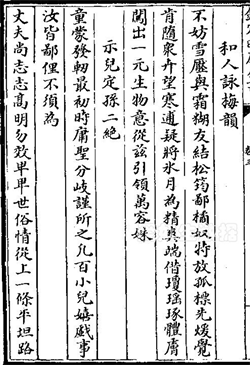 和人詠梅韻
不妨雪壓與霜糊友結松筠鄙橘奴特放孤標先煖覺
肯隨衆卉望寒逋疑將水月為精真端借瓊瑤琢體膚
出一元生物意從兹引領萬容姝
示兒定孫二絶
童蒙發軔最初時庸聖分岐謹所之凡百小兒嬉戲事
汝皆鄙俚不須為
丈夫尚志志高明勿效卑卑世俗情從上一條平坦路